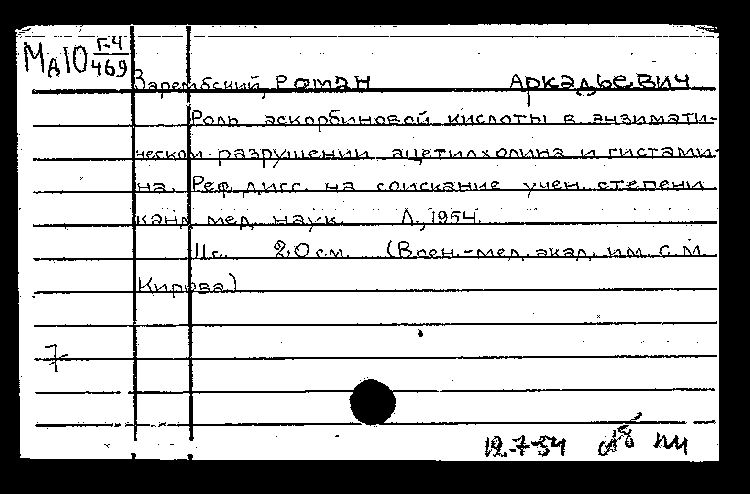 Мд10 Г-4/469
Зарембский, Роман Аркадьевич
Роль аскорбиновой кислоты в энзимати-
ческом разрушении ацетилхолина и гистами-
на. Реф. дисс. на соискание учен. степени
канд. мед. наук. Л., 1954.
11 с. 20 см. (Воен.-мед. акад. им. С. М.
Кирова)
7
12-7-54